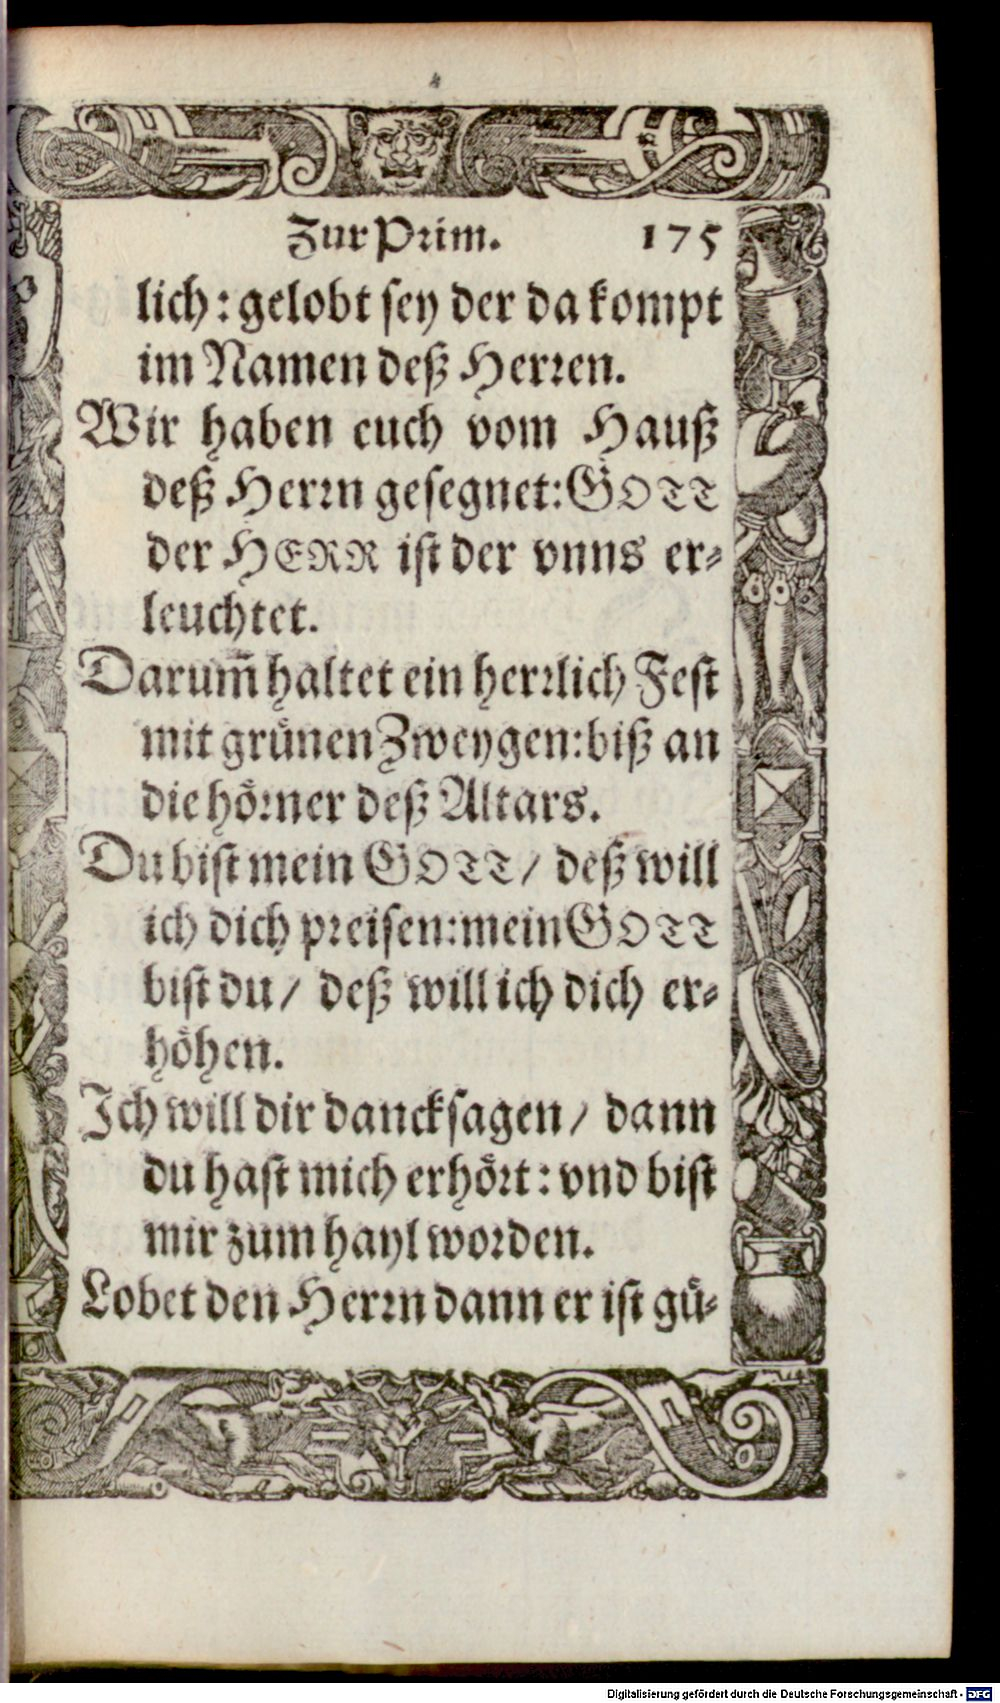 Zur Prim. 175
lich: gelobt sey der da kompt
im Namen deß Herren.
Wir haben euch vom Hauß
deß Herrn gesegnet: GOTT
der HERR ist der vnns er-
leuchtet.
Darum̃ haltet ein herrlich Fest
mit grünen Zweygen: biß an
die hörner deß Altars.
Du bist mein GOTT / deß will
ich dich preisen: mein GOTT
bist du / deß will ich dich er-
höhen.
Ich will dir dancksagen / dann
du hast mich erhört: vnd bist
mir zum hayl worden.
Lobet den Herrn dann er ist gü-
Digitalisierung gefördert durch die Deutsche Forschungsgemeinschaft - DFG